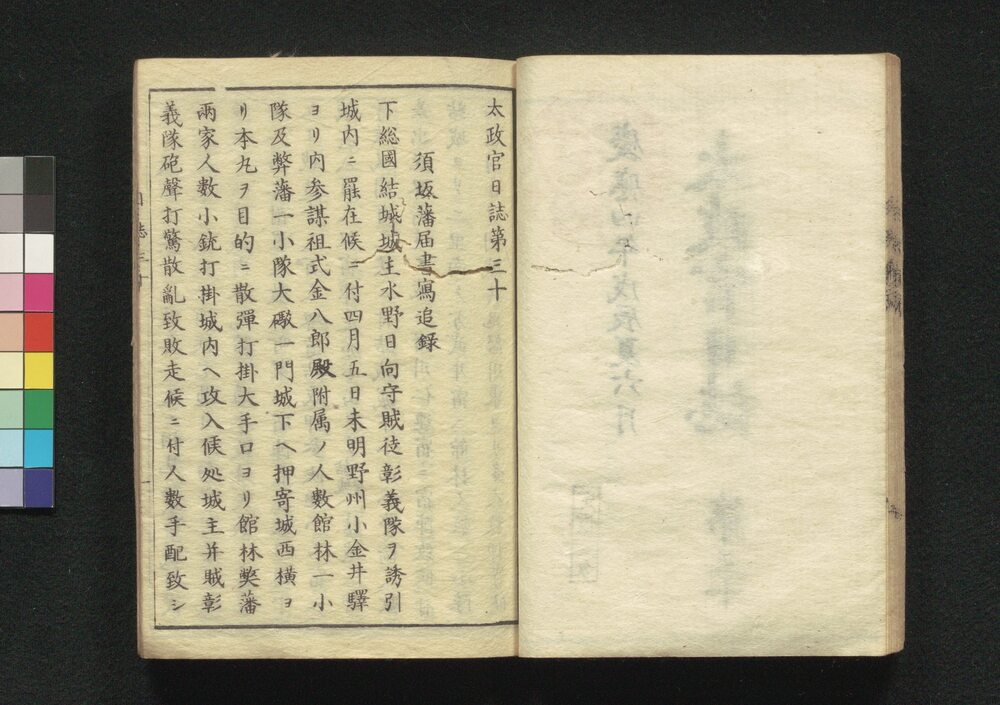 太政官日誌第三十
須坂藩届書寫追録
下総國結城城主水野日向守賊徒彰義隊ヲ誘引
城内ニ罷在候ニ付四月五日未明野州小金井驛
ヨリ内参謀祖式金八郎殿附属ノ人數館林一小
隊及弊藩一小隊大礟一門城下ヘ押寄城西横ヨ
リ本丸ヲ目的ニ散彈打掛大手口ヨリ館林弊藩
兩家人數小銃打掛城内ヘ攻入候処城主并賊彰
義隊砲聲打驚散亂致敗走候ニ付人數手配致シ